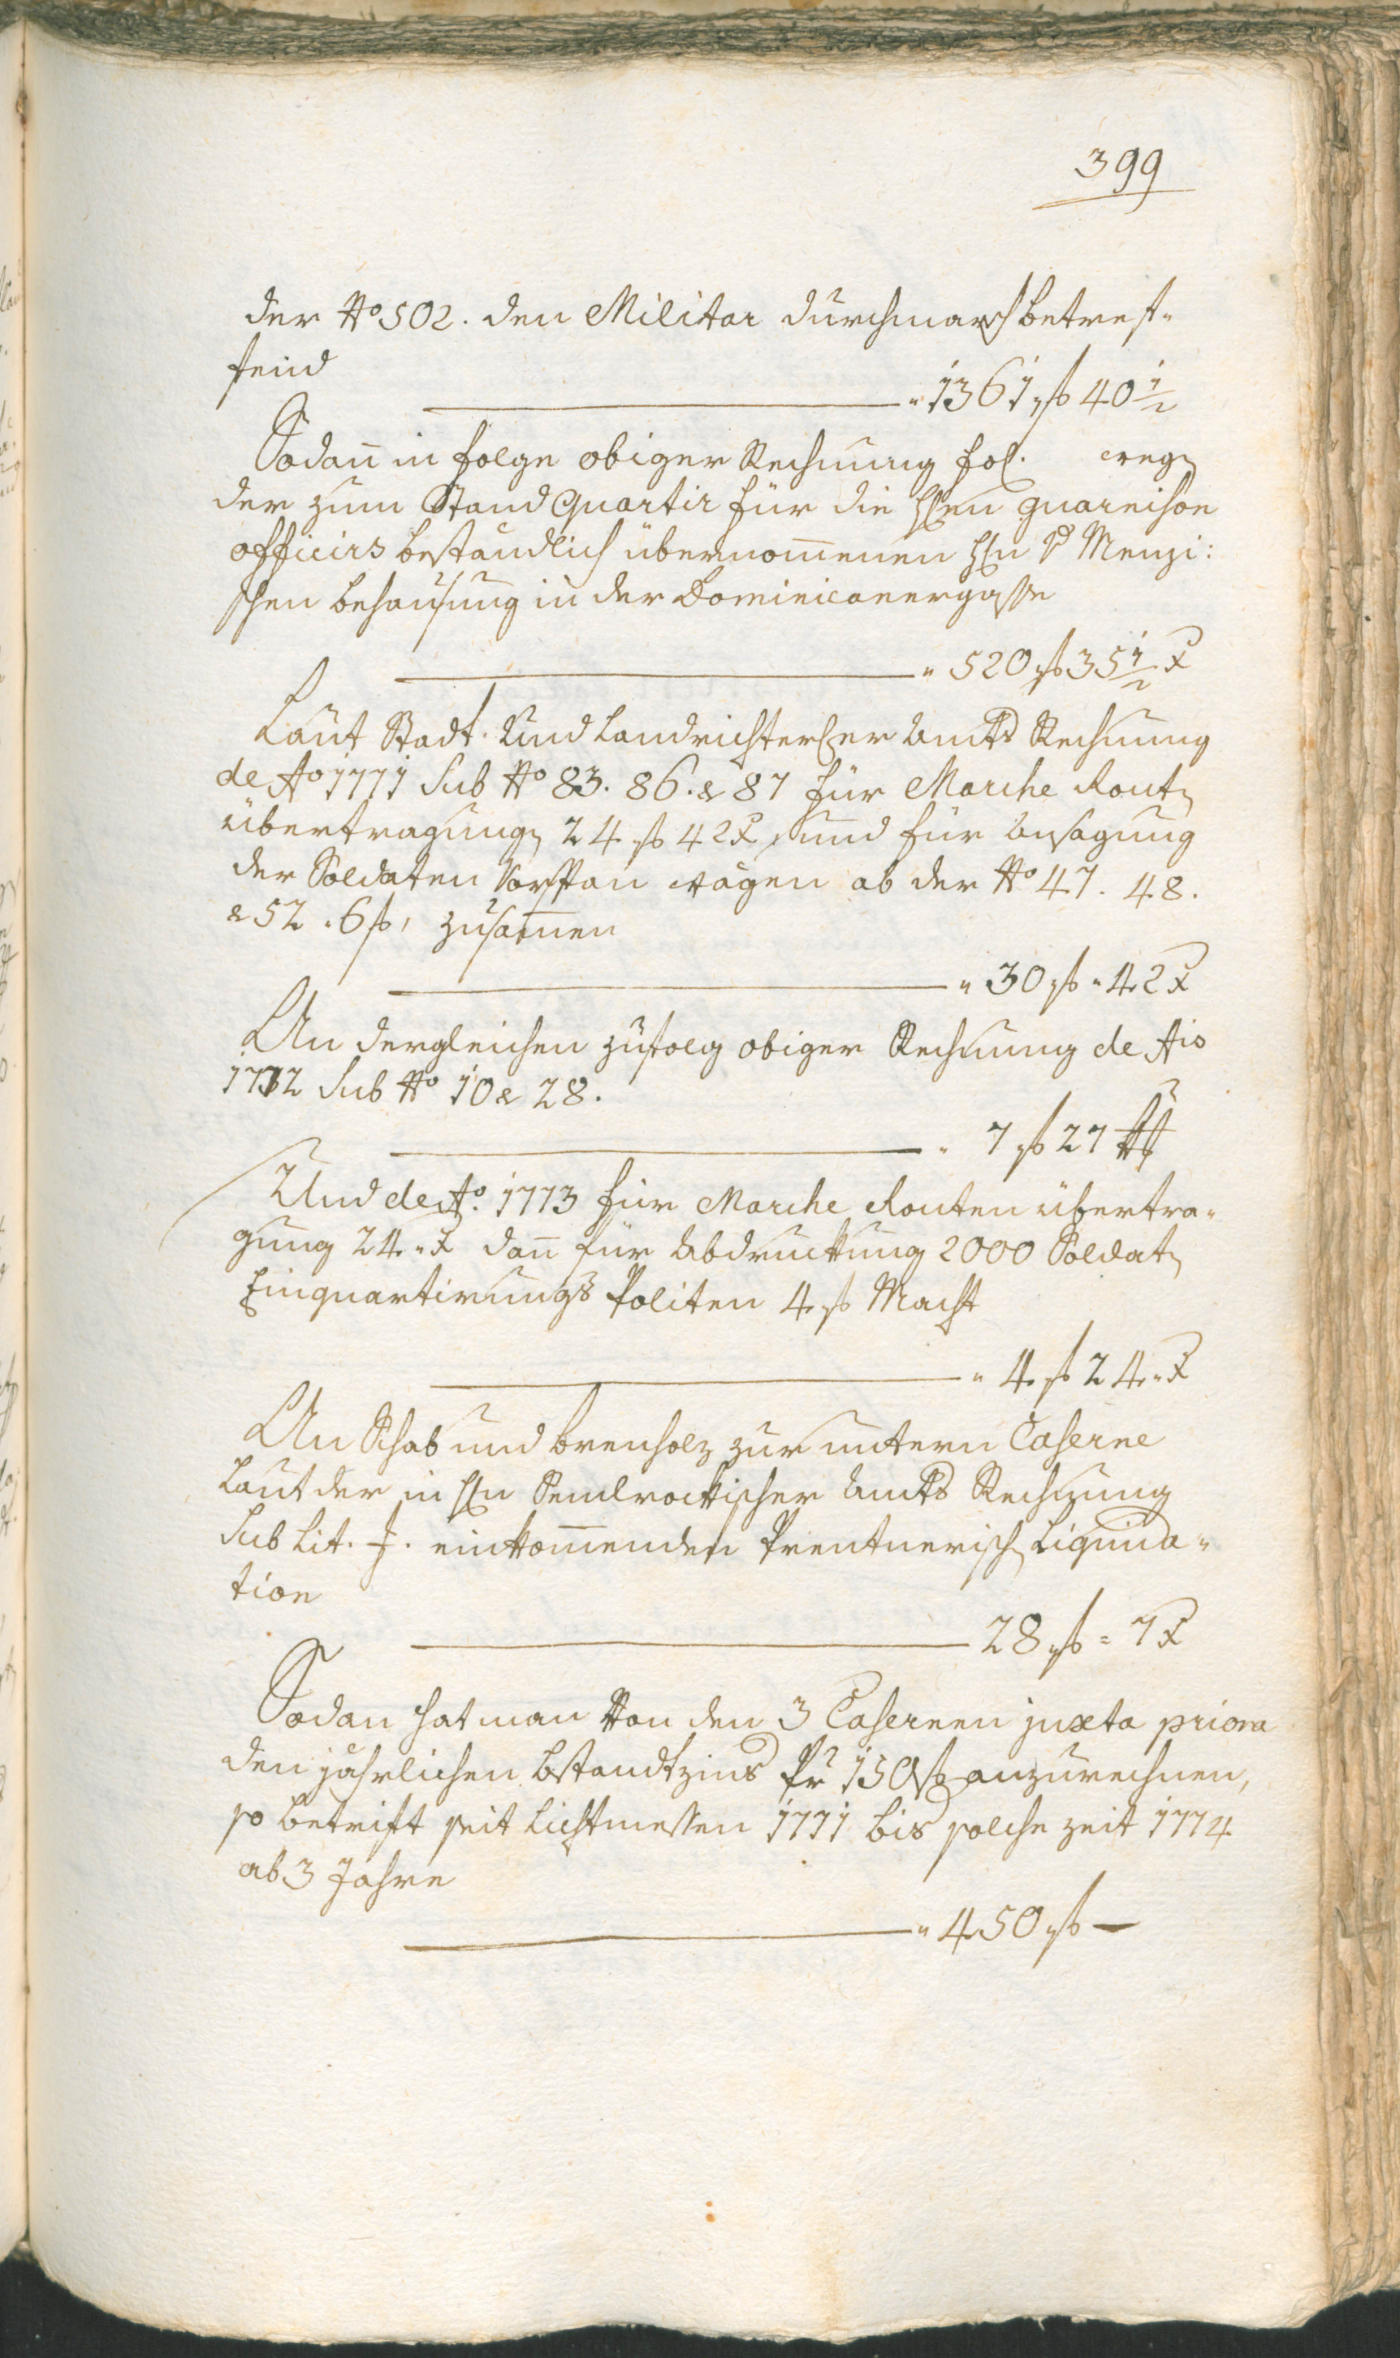 399
der No 502. den Militar durchmarsch betref-
fend
" 1361 f 40 1/2
Sodann in folge obiger Rechnung fol. weg
der zum Stand Quartir für die Hren guarnison
officirs beständlich übernommenen Hrn v Menzi:
schen behausung in der Dominicanergasse
" 520 f 35 1/2 x
Laut Stadt- und Landrichterler Amts Rechnung
de Ao 1771 Sub No 83. 86. & 87 für Marche Rout
übertragung 24 f 42 x, und für Ansagung
der Soldaten Vorspan wägen ab der No 47. 48.
& 52 " 6 f, zusammen
" 30 f " 42 x
An dergleichen zufolg obiger Rechnung de Ais
1772 Sub No 10 & 28.
" 7 f 27 xr
Und de Ao. 1773 für Marche Routen übertra-
gung 24 " x dann für Abdruckung 2000 Soldat
Einquartirungs Politen 4 f Macht
" 4 f 24 " x
An Schab und brenholz zur untern Caserne
Laut der in Hrn Amts Rechnung
Sub Lit. J. einkommenden Prentnerisch Liquida-
tion
28 f = 7 x
Sodan hat man von den 3 Casernen juxta priora
den jährlichen bstandtzins Pr 150 f anzurechnen,
so betrift seit Lichtmessen 1771 bis solche zeit 1774
ab 3 Jahre
" 450 f —